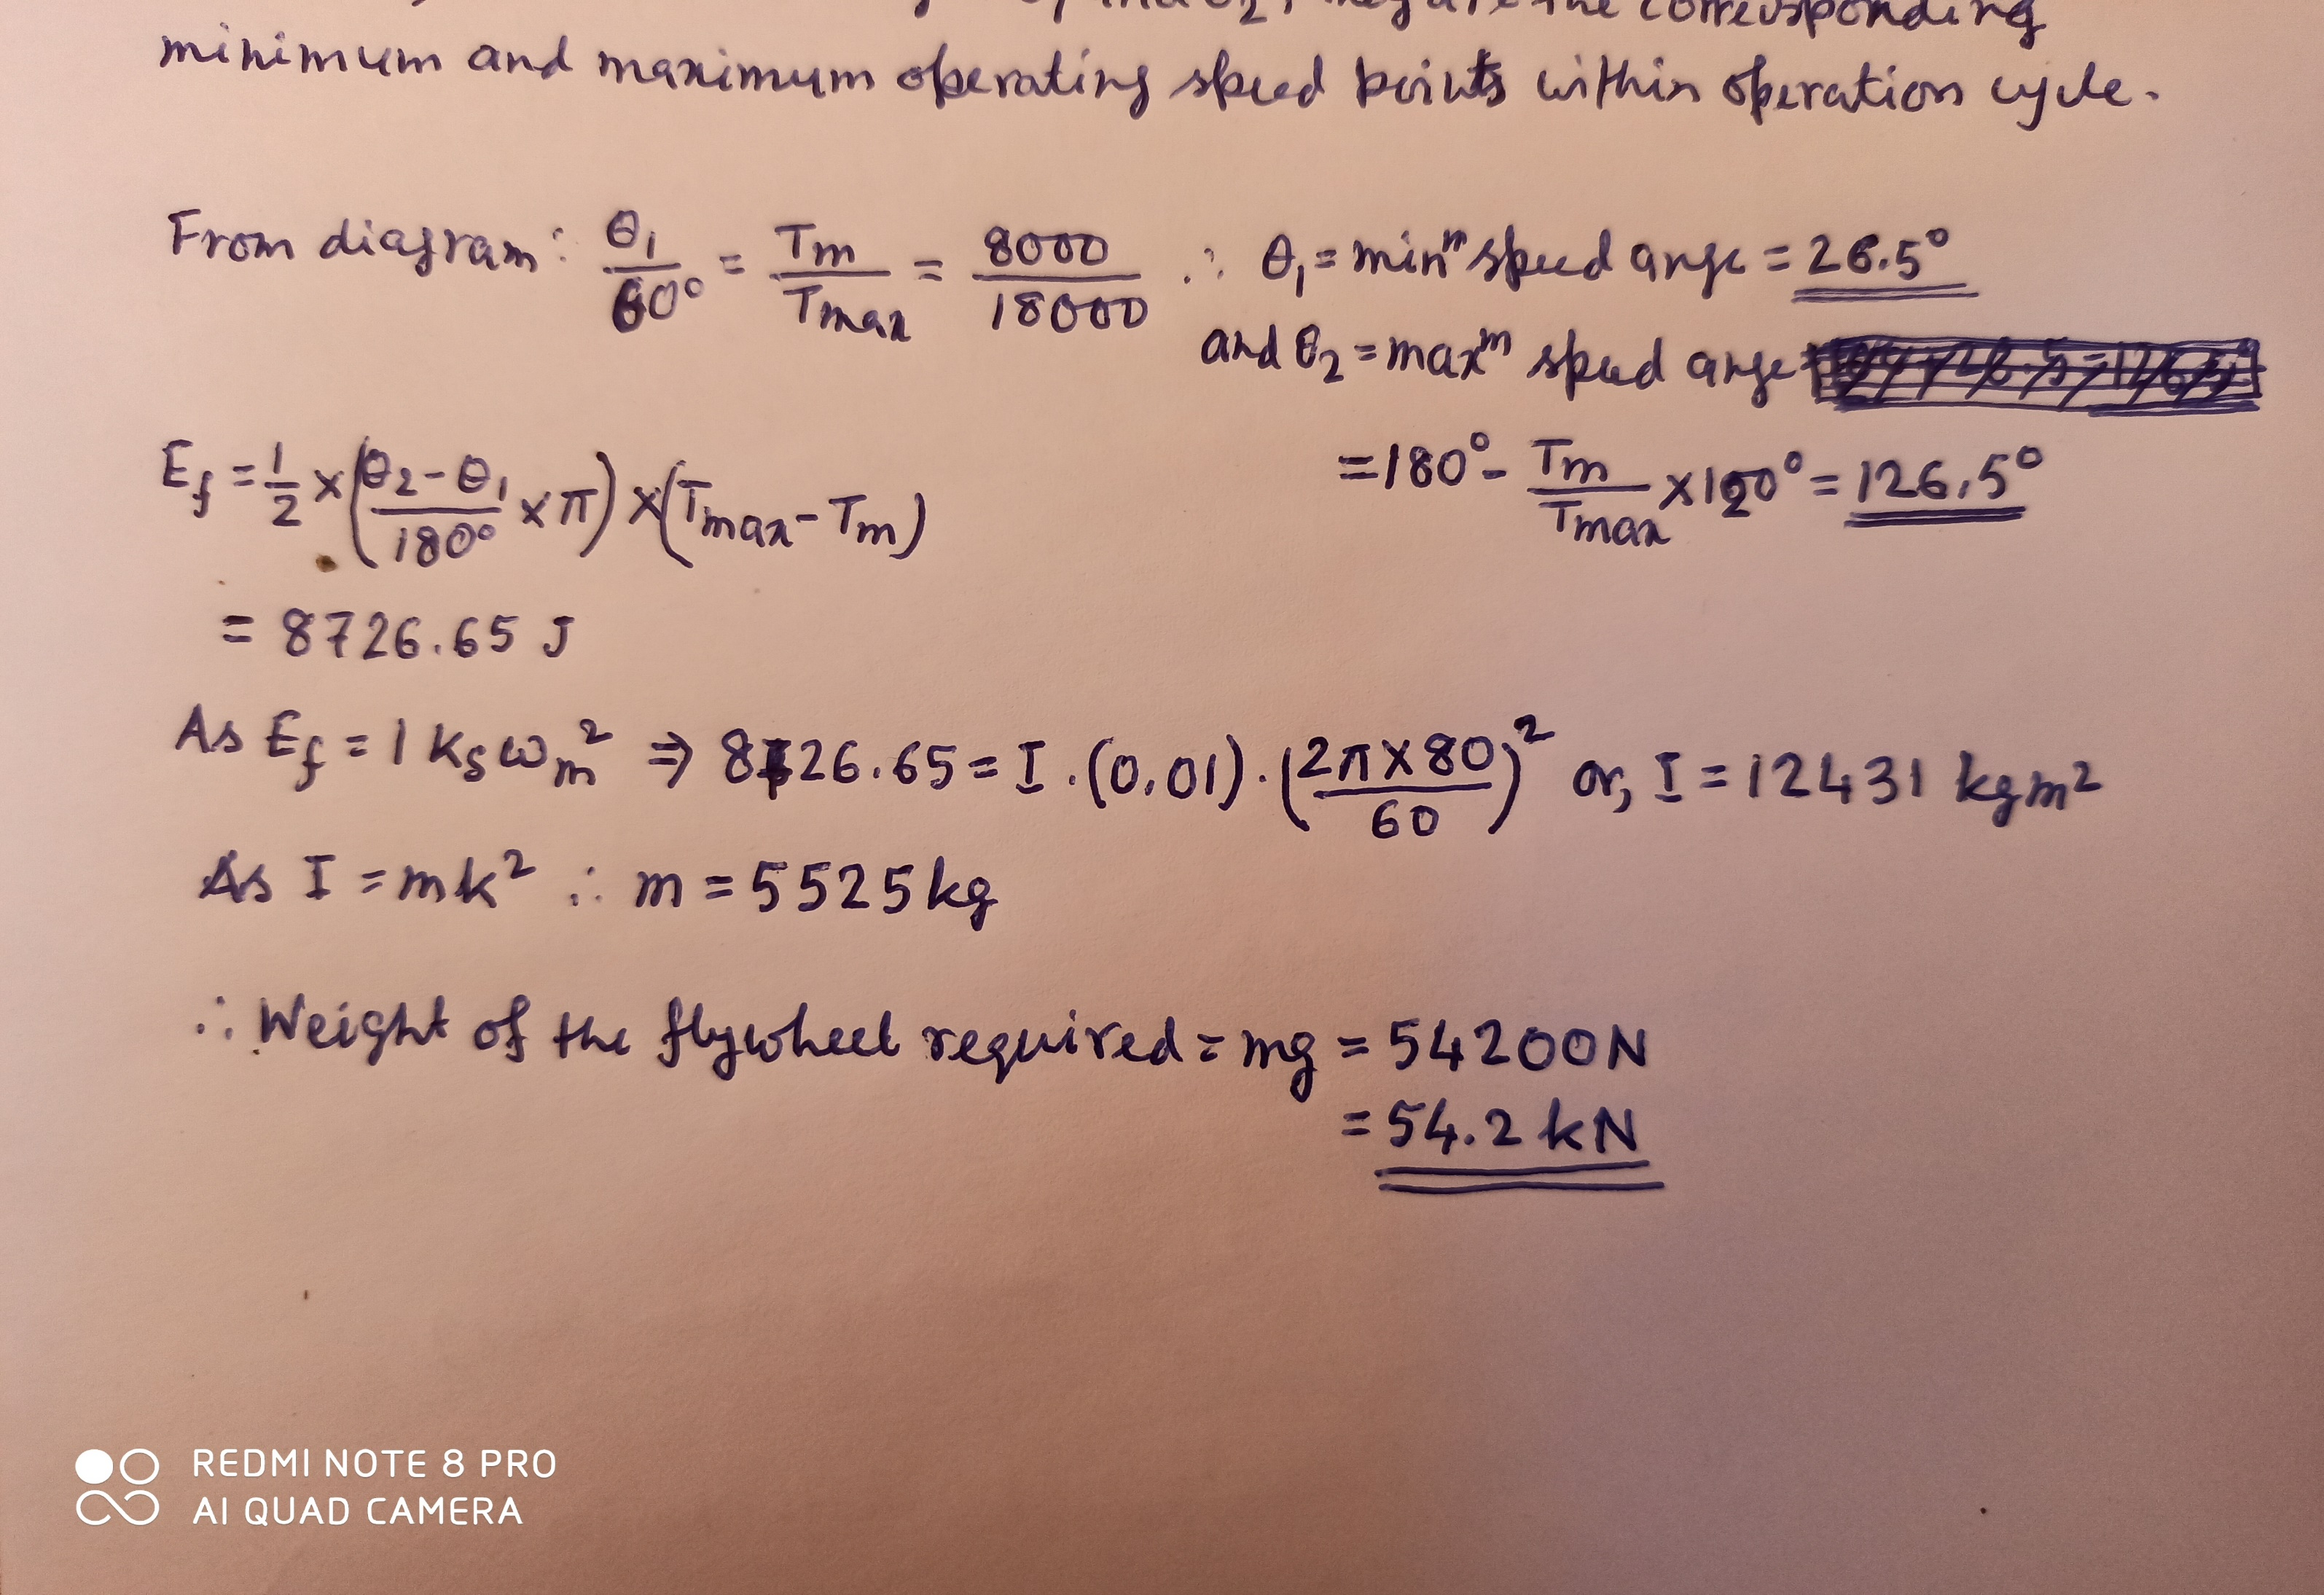 and θ2, neg are the corresponding
minimum and maximum operating speed points within operation cycle.
From diagram: θ1/60° = Tm/Tmax = 8000/18000 ∴ θ1 = minm speed ange = 26.5°
and θ2 = maxm speed ange
= 180° - Tm/Tmax × 120° = 126.5°
Ef = 1/2 × (θ2-θ1/180° × π) × (Tmax - Tm)
= 8726.65 J
As Ef = I Ks ωm² ⇒ 8726.65 = I . (0.01) . (2π×80/60)² or, I = 12431 kgm²
As I = mk² ∴ m = 5525 kg
∴ Weight of the flywheel required = mg = 54200N
= 54.2 kN
REDMI NOTE 8 PRO
AI QUAD CAMERA